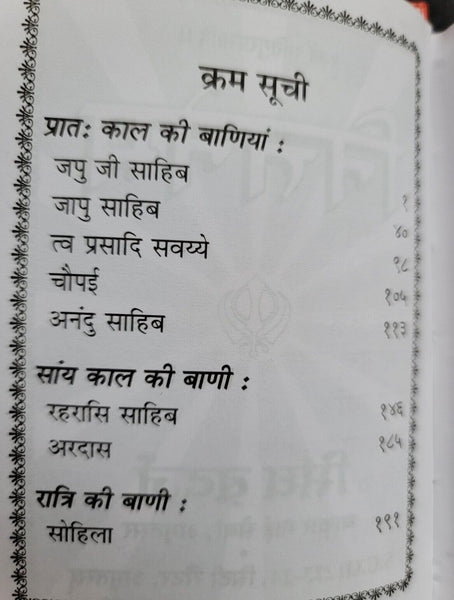 क्रम सूची
प्रात: काल की बाणियां :
जपु जी साहिब १
जापु साहिब ४०
त्व प्रसादि सवय्ये ९८
चौपई १०५
अनंदु साहिब ११३
सांय काल की बाणी :
रहरासि साहिब १४६
अरदास १८५
रात्रि की बाणी :
सोहिला १९१